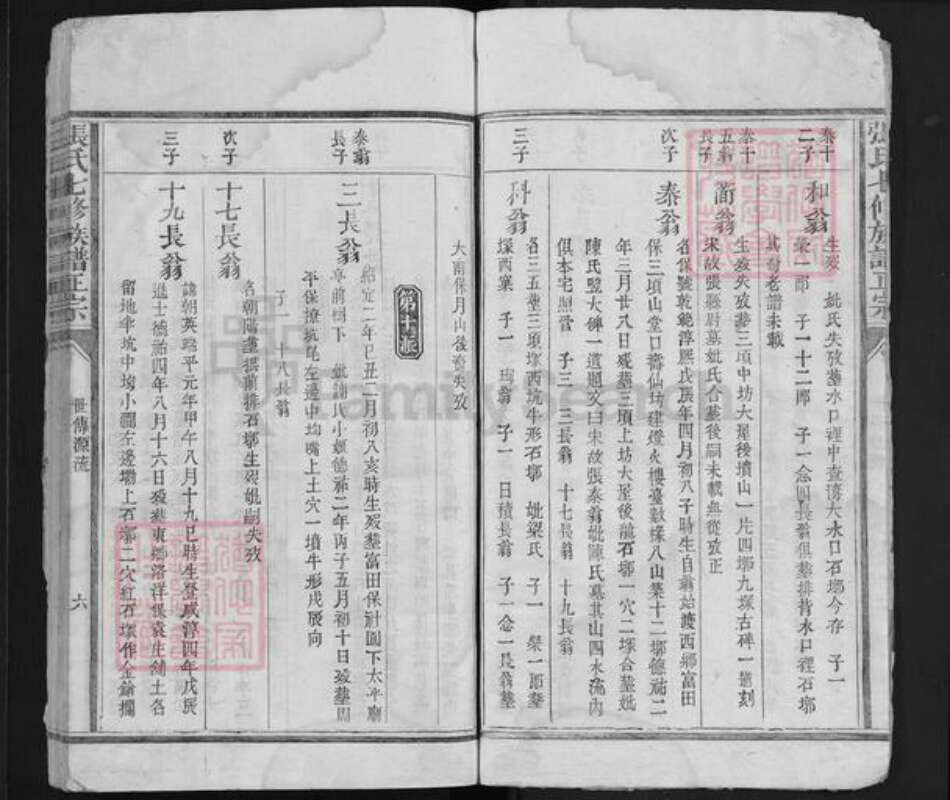 張氏七修族譜正宗
泰十
二子
和翁
生歿 妣氏失攷墓水口裡中查灣大水口石塚今存 子一
榮一郎 子一十二郎 子一念四長翁俱墓排背水口裡石塚
其裔老譜未載
泰十
五翁
長子
蘭翁
生歿失攷墓三項中坊大屋後墳山一片四塚九塚古碑一道刻
宋故張縣尉墓妣氏合墓後嗣未載無從攷正
次子
泰翁
名保號乾範淳熙戊辰年四月初八子時生自翁始渡西鄉富田
保三項山堂口齋仙坊建燈火樓臺數棟八山築十二塚德祐二
年三月廿八日歿墓三項上坊大屋後龍石塚一穴二塚合墓妣
陳氏豎大碑一道題文曰宋故張泰翁妣陳氏墓其山四水流內
俱本宅照管 子三 三長翁 十七長翁 十九長翁
三子
科翁
名三五墓三項塚西坑牛形石塚 妣梁氏 子一 榮一郎墓
塚西窠 子一 瑀翁 子一 日積長翁 子一念一長翁墓
大南保月山後裔失攷
第十派
泰翁
長子
三長翁
紹定二年己丑二月初八亥時生歿墓富田保社圓下太平廟
亭前樹下 妣蕭氏小娘德祐二年丙子五月初十日歿墓開
平保潦坑尾左邊中坳嘴上土穴一墳牛形戌辰向
子一 十八長翁
次子
十七長翁
名朝陽墓振前排石塚生歿妣嗣失攷
三子
十九長翁
諱朝英端平元年甲午八月十九巳時生登咸淳四年戊辰
進士德祐四年八月十六日歿墓東鄉洛洋保袁庄舖土名
留地牛坑中坳小澗左邊壩上石塚二穴紅石塚作金鎗攔
張氏七修族譜正宗
世傳源流
六